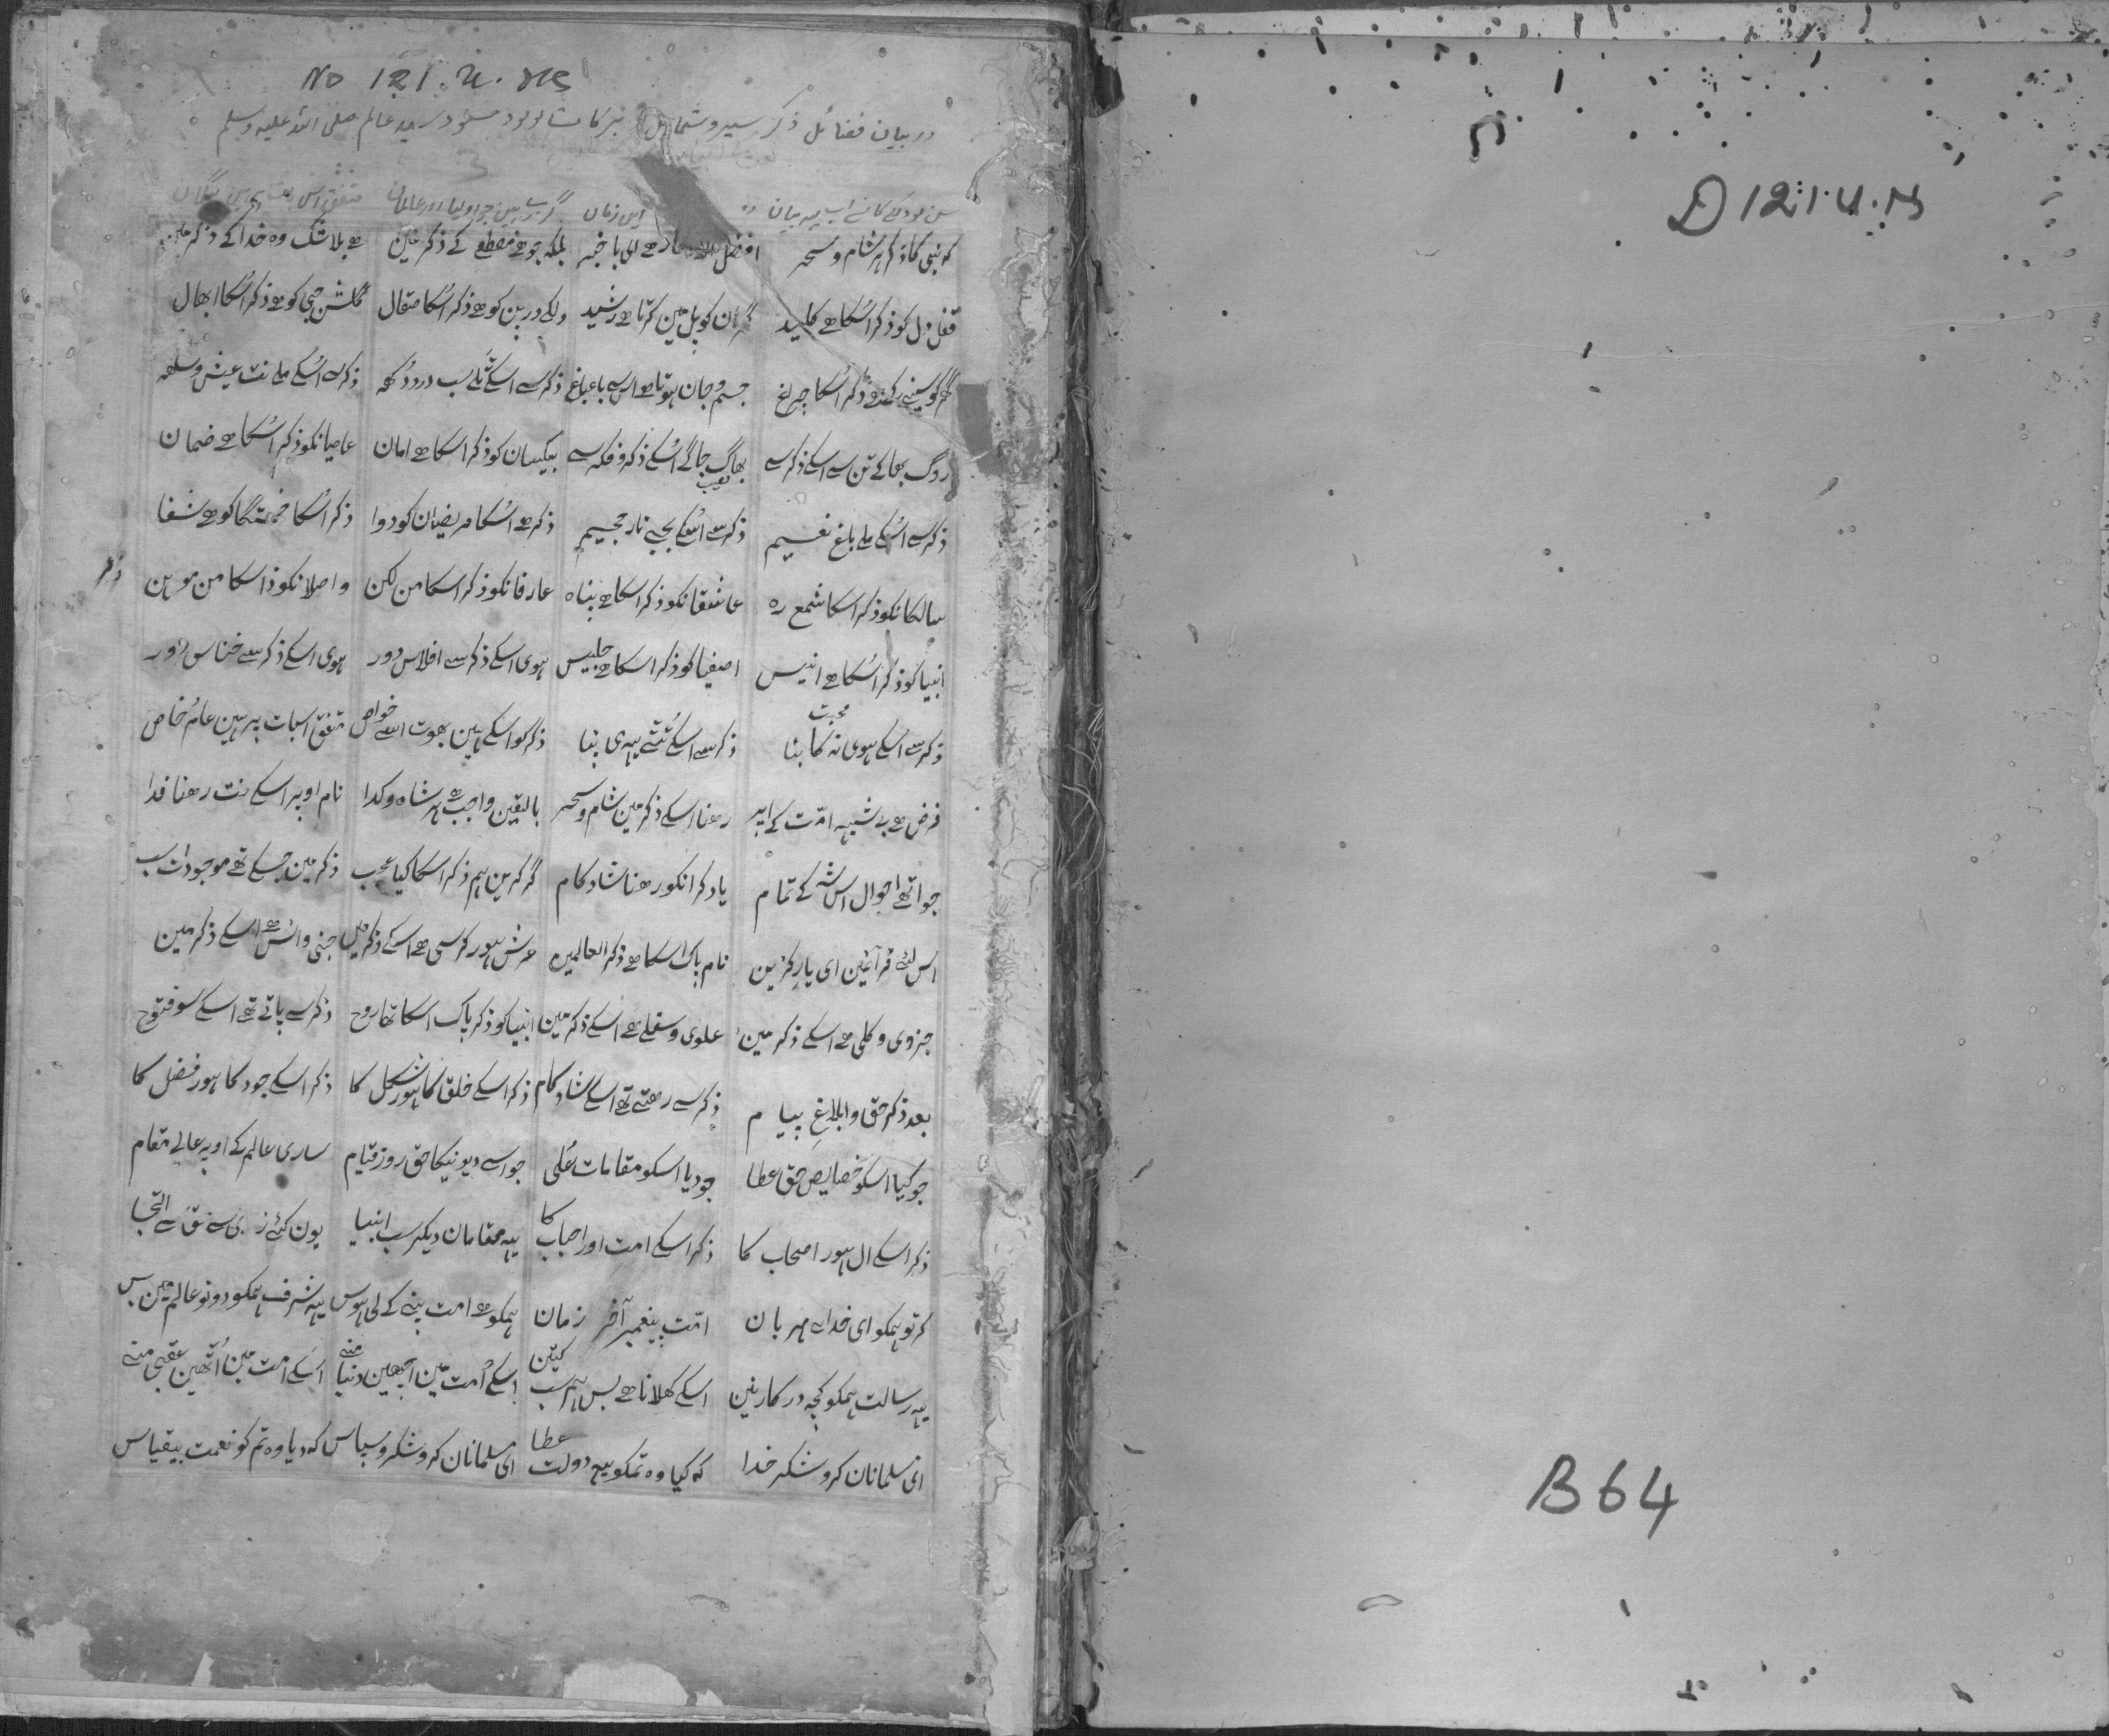 D 121. U. M
B 64
No 121. U. MS
در بیان فضائل ذکر سیر و شمائل و برکات مولود مسعود سید عالم صلی اللہ علیہ وسلم
کہ نبی کا ذکر ہر شام و سحر افضل ہے ای با خبر بلکہ جو ہے مصطفے کے ذکر مین ہے بلا شک وہ خدا کے ذکر مین
قفل دل کو ذکر اسکا ہے کلید گمرہان کو پل مین کرتا ہے رشید دلکے درپن کو ہے ذکر اسکا صقال گلشن جی کو ہے ذکر اسکا ابھال
گھر کو سینے کے ہے ذکر اسکا چراغ جسم و جان ہوتا ہے اس سے باغباغ ذکر سے اسکے ٹلے سب درد دکھہ ذکر سے اسکے ملے نت عیش و سکھہ
روگ بھاگے تن سے اسکے ذکر سے بھاگ جاگے اسکے ذکر و فکر سے بیکسان کو ذکر اسکا ہے امان عاصیانکو ذکر اسکا ہے ضمان
ذکر سے اسکے ملے باغ نعیم ذکر سے اسکے بجھے نار جحیم ذکر ہے اسکا مریضان کو دوا ذکر اسکا خستگا کو ہے شفا
سالکانکو ذکر اسکا شمع رہ عاشقانکو ذکر اسکا ہے پناہ عارفانکو ذکر اسکا من لکن واصلانکو ذ اسکا من موہن
ذکر
انبیا کو ذکر اسکا ہے انیس اصفیا کو ذکر اسکا ہے جلیس ہوی اسکے ذکر سے افلاس دور ہوی اسکے ذکر سے خناس دور
محبت
ذکر سے اسکے ہوی نہ کا بنا ذکر سے اسکے ہی بنا ذکر کو اسکے ہین بھوت اسے خواص متفق اسبات پر ہین عام خاص
فرض ہے بے شبہہ امّت کے اپر رھنا اسکے ذکر مین شام و سحر بالیقین واجب ہے ہر شاہ و کدا نام اوپر اسکے نت رھنا فدا
جو اتھے احوال اس شہ کے تمام یاد کر انکو رھنا شاد کام گر کرین ہم ذکر اسکا کیا عجب ذکر مین جسکے تھے موجودات سب
اس لئے قرآنمین ای یار گزین نام پاک اسکا ہے ذکر العالمین عرش ہور کرسی ہے اسکے ذکر مین جنی و انس ہے اسکے ذکر مین
جزوی و کلی ہے اسکے ذکر مین علوی و سفلے ہے اسکے ذکر مین انبیا کو ذکر پاک اسکا تھا روح ذکر سے پاتے تھے اسکے سو فتوح
بعد ذکر حق و ابلاغ پیام ذکر سے رھتے تھے اسکے شاد کام ذکر اسکے خلق کا ہور شکل کا ذکر اسکے جود کا ہور فضل کا
جو کیا اسکو خصایص حق عطا جو دیا اسکو مقامات علی جو اسے دیونیکا حق روز قیام ساری عالم کے اوپر عالے مقام
ذکر اسکے ال ہور اصحاب کا ذکر اسکے امت اور احباب کا یہہ مقامان دیکر سب انبیا یون کئے سے التجا
کر تو ہمکو ای خدای مہربان امّت پیغمبر آخر زمان ہمکو ہے امت پنے کے لی ہوس یہہ شرف ہمکو دونو عالم مین بس
یہہ رسالت ہمکو کچہ درکار نین اسکے کھلانا ہے بس ہم سب کیتن اسکے امت مین اچھین دنیا منے اسکے امت مین اٹھین عقبی منے
ای مسلمانان کرو شکر خدا کہ کیا وہ تمکو یہہ دولت عطا ای مسلمانان کرو شکر و سپاس کہ دیا وہ تم کو نعمت بیقیاس